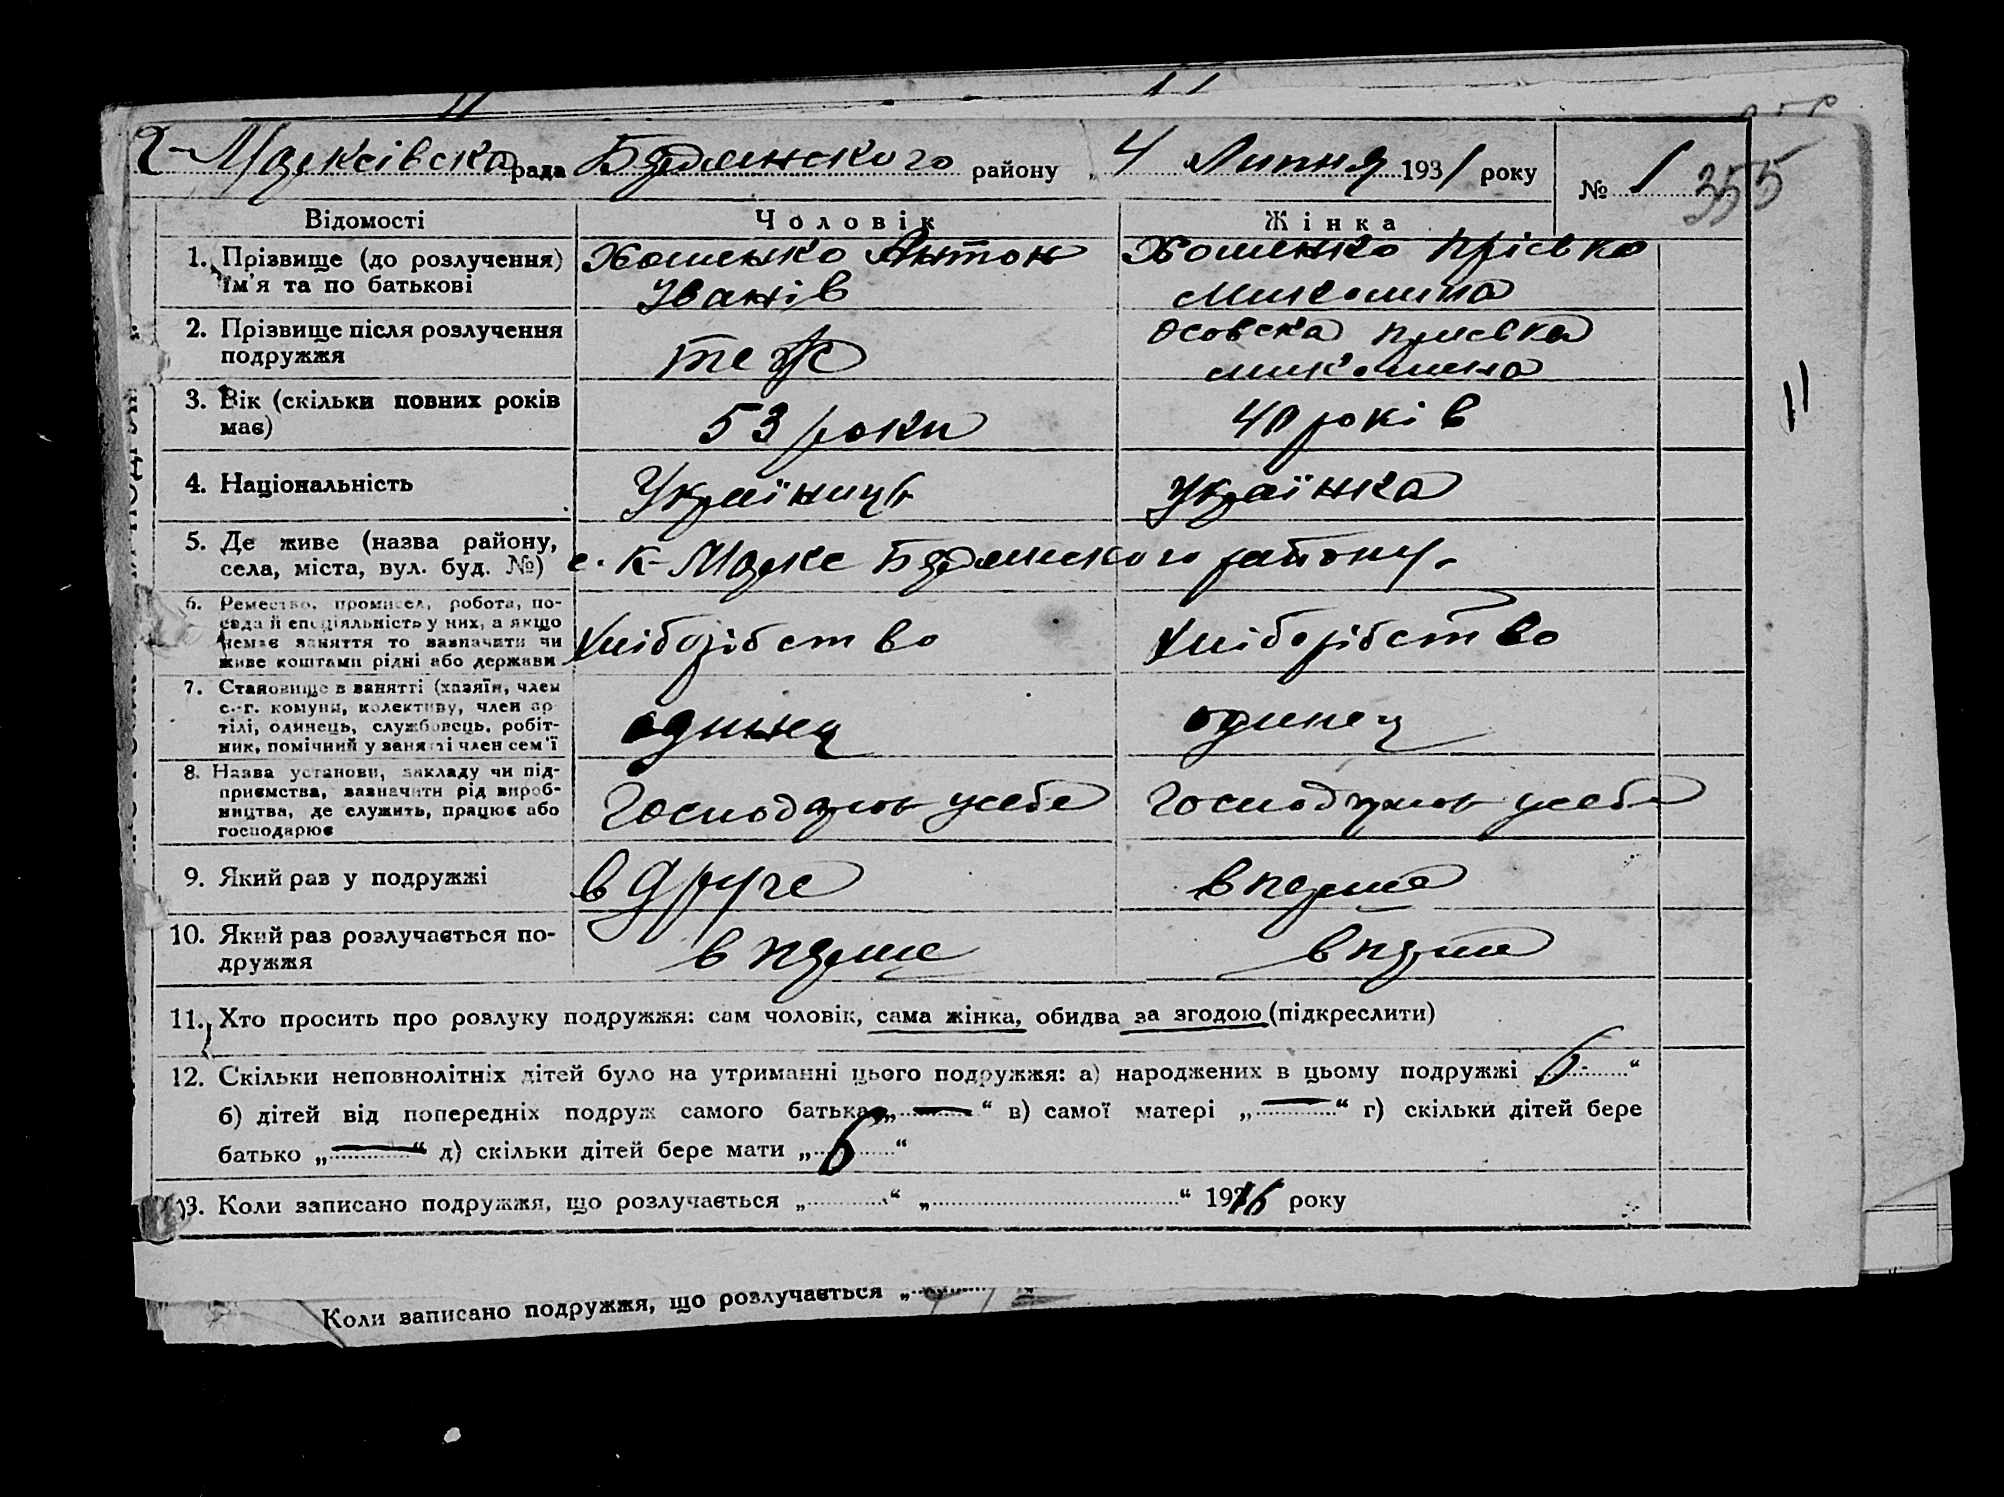 Марксівска рада Бердянского району „ 4 Липня 1931 року № 1 355
Відомості Чоловік Жінка
1. Прізвище (до розлучення) ім'я та по батькові Хоменко Антон Іванів Хоменко Пріська Миколина
2. Прізвище після розлучення подружжя теж Осовска Приська Миколина
3. Вік (скільки повних років має) 53 роки 40 років
4. Національність Українець Українка
5. Де живе (назва району, села, міста, вул. буд. №) с. К-Маркс Бердянского району.
6. Ремество, промисел, робота, по-
сада й спеціяльність у них, а якщо
немає заняття то зазначити чи
живе коштами рідні або держави хліборібство хліборібство
7. Становище в занятті (хазяїн, член
с.-г. комуни, колективу, член ар-
тілі, одинець, службовець, робіт-
ник, помічний у занятті член сем'ї одинец одинец
8. Назва установи, закладу чи під-
приємства, зазначити рід вироб-
ництва, де служить, працює або
господарює Господарює у себе Господарює у себе
9. Який раз у подружжі в друге в перше
10. Який раз розлучається по-
дружжя в перше в перше
11. Хто просить про розлуку подружжя: сам чоловік, сама жінка, обидва за згодою (підкреслити)
12. Скільки неповнолітніх дітей було на утриманні цього подружжя: а) народжених в цьому подружжі 6 “
б) дітей від попередніх подруж самого батька „ — “ в) самої матері „ — “ г) скільки дітей бере
батько „ — “ д) скільки дітей бере мати „ 6 “
13. Коли записано подружжя, що розлучається „ “ „ “ 1916 року
Коли записано подружжя, що розлучається „